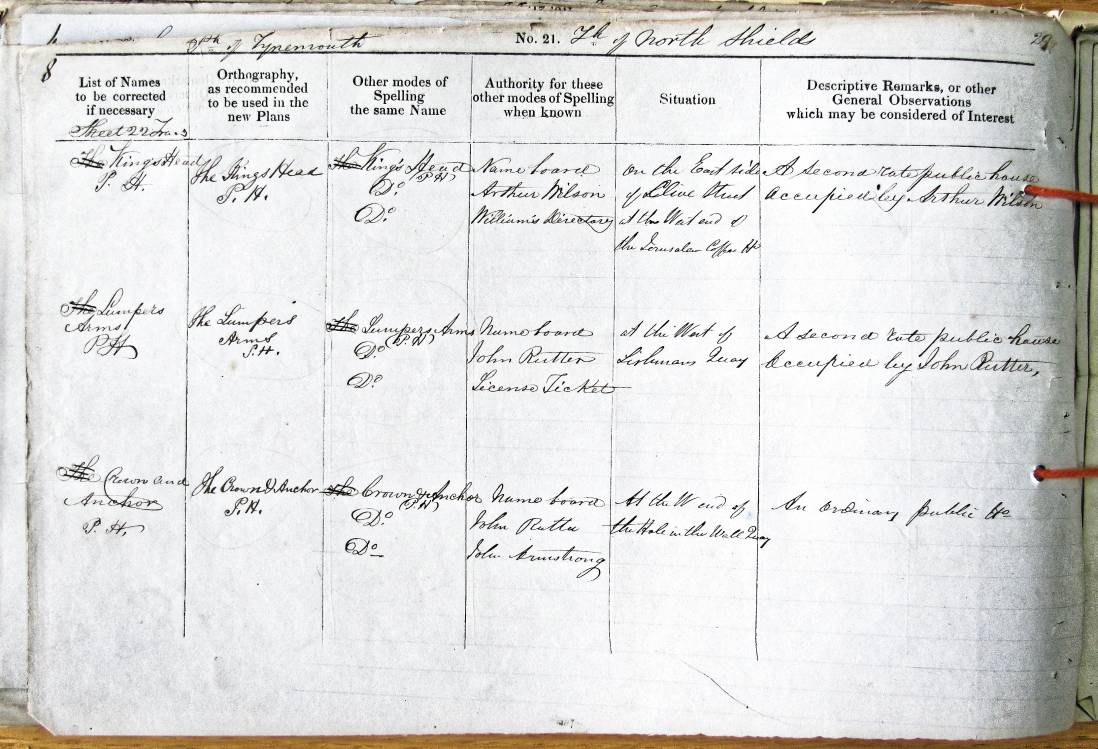 Psh of Tynemouth No. 21. Th of North Shields
8
List of Names
to be corrected
if necessary
Orthography,
as recommended
to be used in the
new Plans
Other modes of
Spelling
the same Name
Authority for these
other modes of Spelling
when known
Situation
Descriptive Remarks, or other
General Observations
which may be considered of Interest
Sheet 22
The King's Head
P. H.
The Kings Head
P. H.
The King's Head
(P H)
Do
Do
Name board
Arthur Wilson
William's Directory
On the East side
of Clive Street
at the West end of
the Jerusalem Coffee H
A second rate public house
Occupied by Arthur Wilson
The Lumpers
Arms
P H
The Lumpers
Arms
P. H.
The Lumpers Arms
(P. H)
Do
Do
Name board
John Rutter
License Ticket
at the West of
Quay
A second rate public house
Occupied by John Rutter,
The Crown and
Anchor
P. H,
The Crown & Anchor
P. H.
The Crown & Anchor
(P. H)
Do
Do
Name board
John Rutter
John Armstrong
At the W end of
the Hole in the Wall Quay
An ordinary public Ho